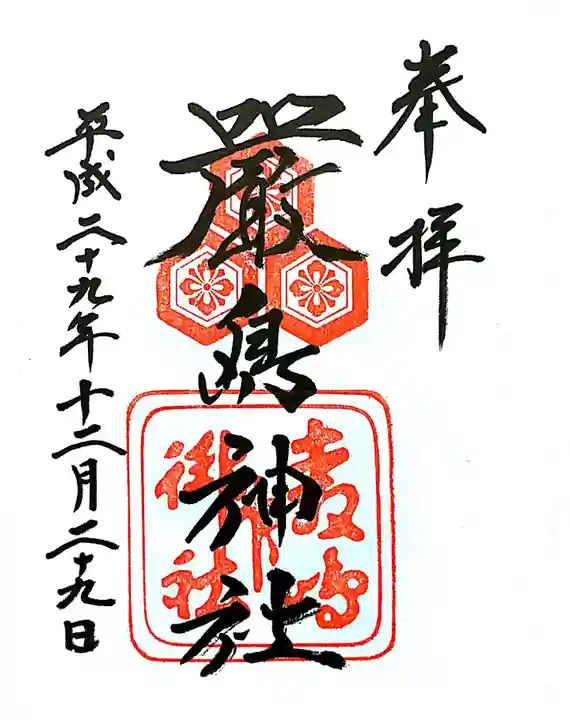 奉拝
嚴嶋神社
平成二十九年十二月二十九日